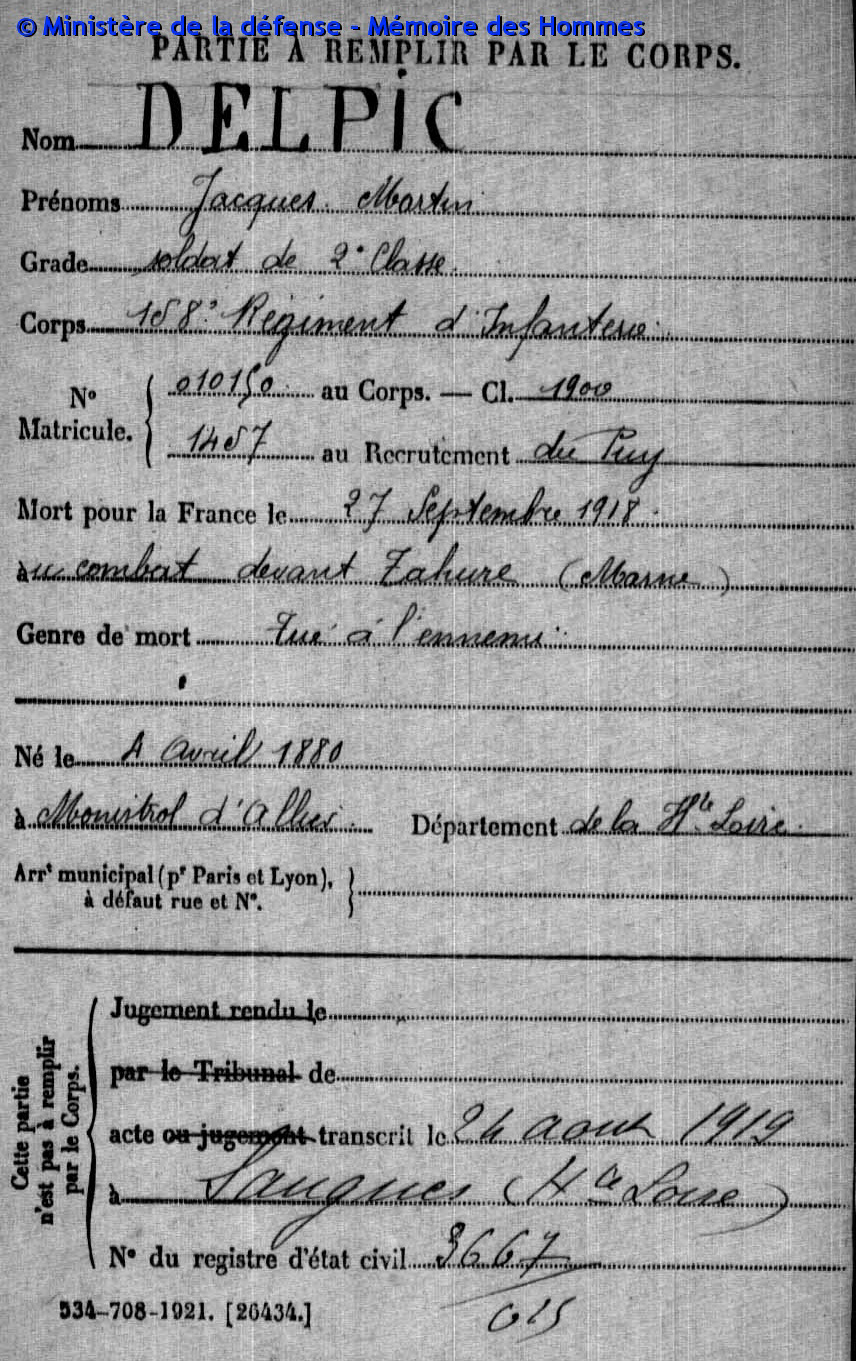 © Ministère de la défense - Mémoire des Hommes
PARTIE A REMPLIR PAR LE CORPS.
Nom DELPIC
Prénoms Jacques Martin
Grade soldat de 2e Classe
Corps 158e Régiment d'Infanterie
No 010150 au Corps. — Cl. 1900
Matricule. 1457 au Recrutement du Puy
Mort pour la France le 27 Septembre 1918
au combat devant Tahure (Marne)
Genre de mort Tué à l'ennemi
Né le 4 Avril 1880
à Monistrol d'Allier Département de la Hte Loire
Arrt municipal (pr Paris et Lyon),
à défaut rue et No.
Cette partie
n'est pas à remplir
par le Corps.
Jugement rendu le
par le Tribunal de
acte ou jugement transcrit le 24 aout 1919
à Saugues (Hte Loire)
No du registre d'état civil 3667
615
534-708-1921. [26434.]